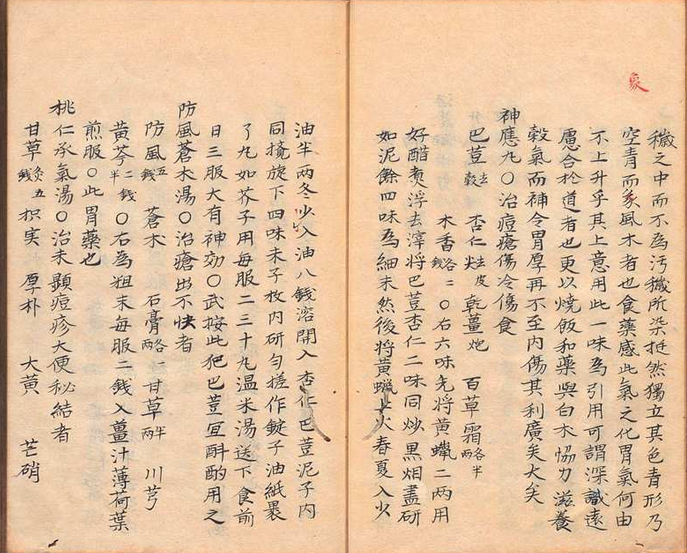 象
穢之中而不為汚穢所染挺然獨立其色青形乃
空青而象風木者也食藥感此氣之化胃氣何由
不上升乎其上意用此一味為引用可謂深識遠
慮合於道者也更以燒飯和藥與白木協力滋養
穀氣而補令胃厚再不至内傷其利廣矣大矣
神應丸〇治痘瘡傷冷傷食
巴荳去殼 杏仁炷皮 乾薑炮 百草霜各両半
木香各二錢〇右六味先將黃蠟二両用
好醋煑浮去滓將巴荳杏仁二味同炒黒烟盡研
如泥餘四味為細末然後將黄蠟上火春夏入火
油半両冬少入油八錢溶開入杏仁巴荳泥子内
同攪旋下四味末子枚内研匀搓作錠子油紙裹
了丸如芥子用每服二三十丸温米湯送下食前
日三服大有神効〇武按此犯巴荳宜斟酌用之
防風蒼木湯〇治瘡出不快者
防風五錢 蒼木 石膏各両 甘草半両 川芎
黄芩二錢半〇右為粗末每服二錢入薑汁薄荷葉
煎服〇此胃藥也
桃仁承氣湯〇治未顯痘疹大便秘結者
甘草炙五錢 枳実 厚朴 大黄 芒硝